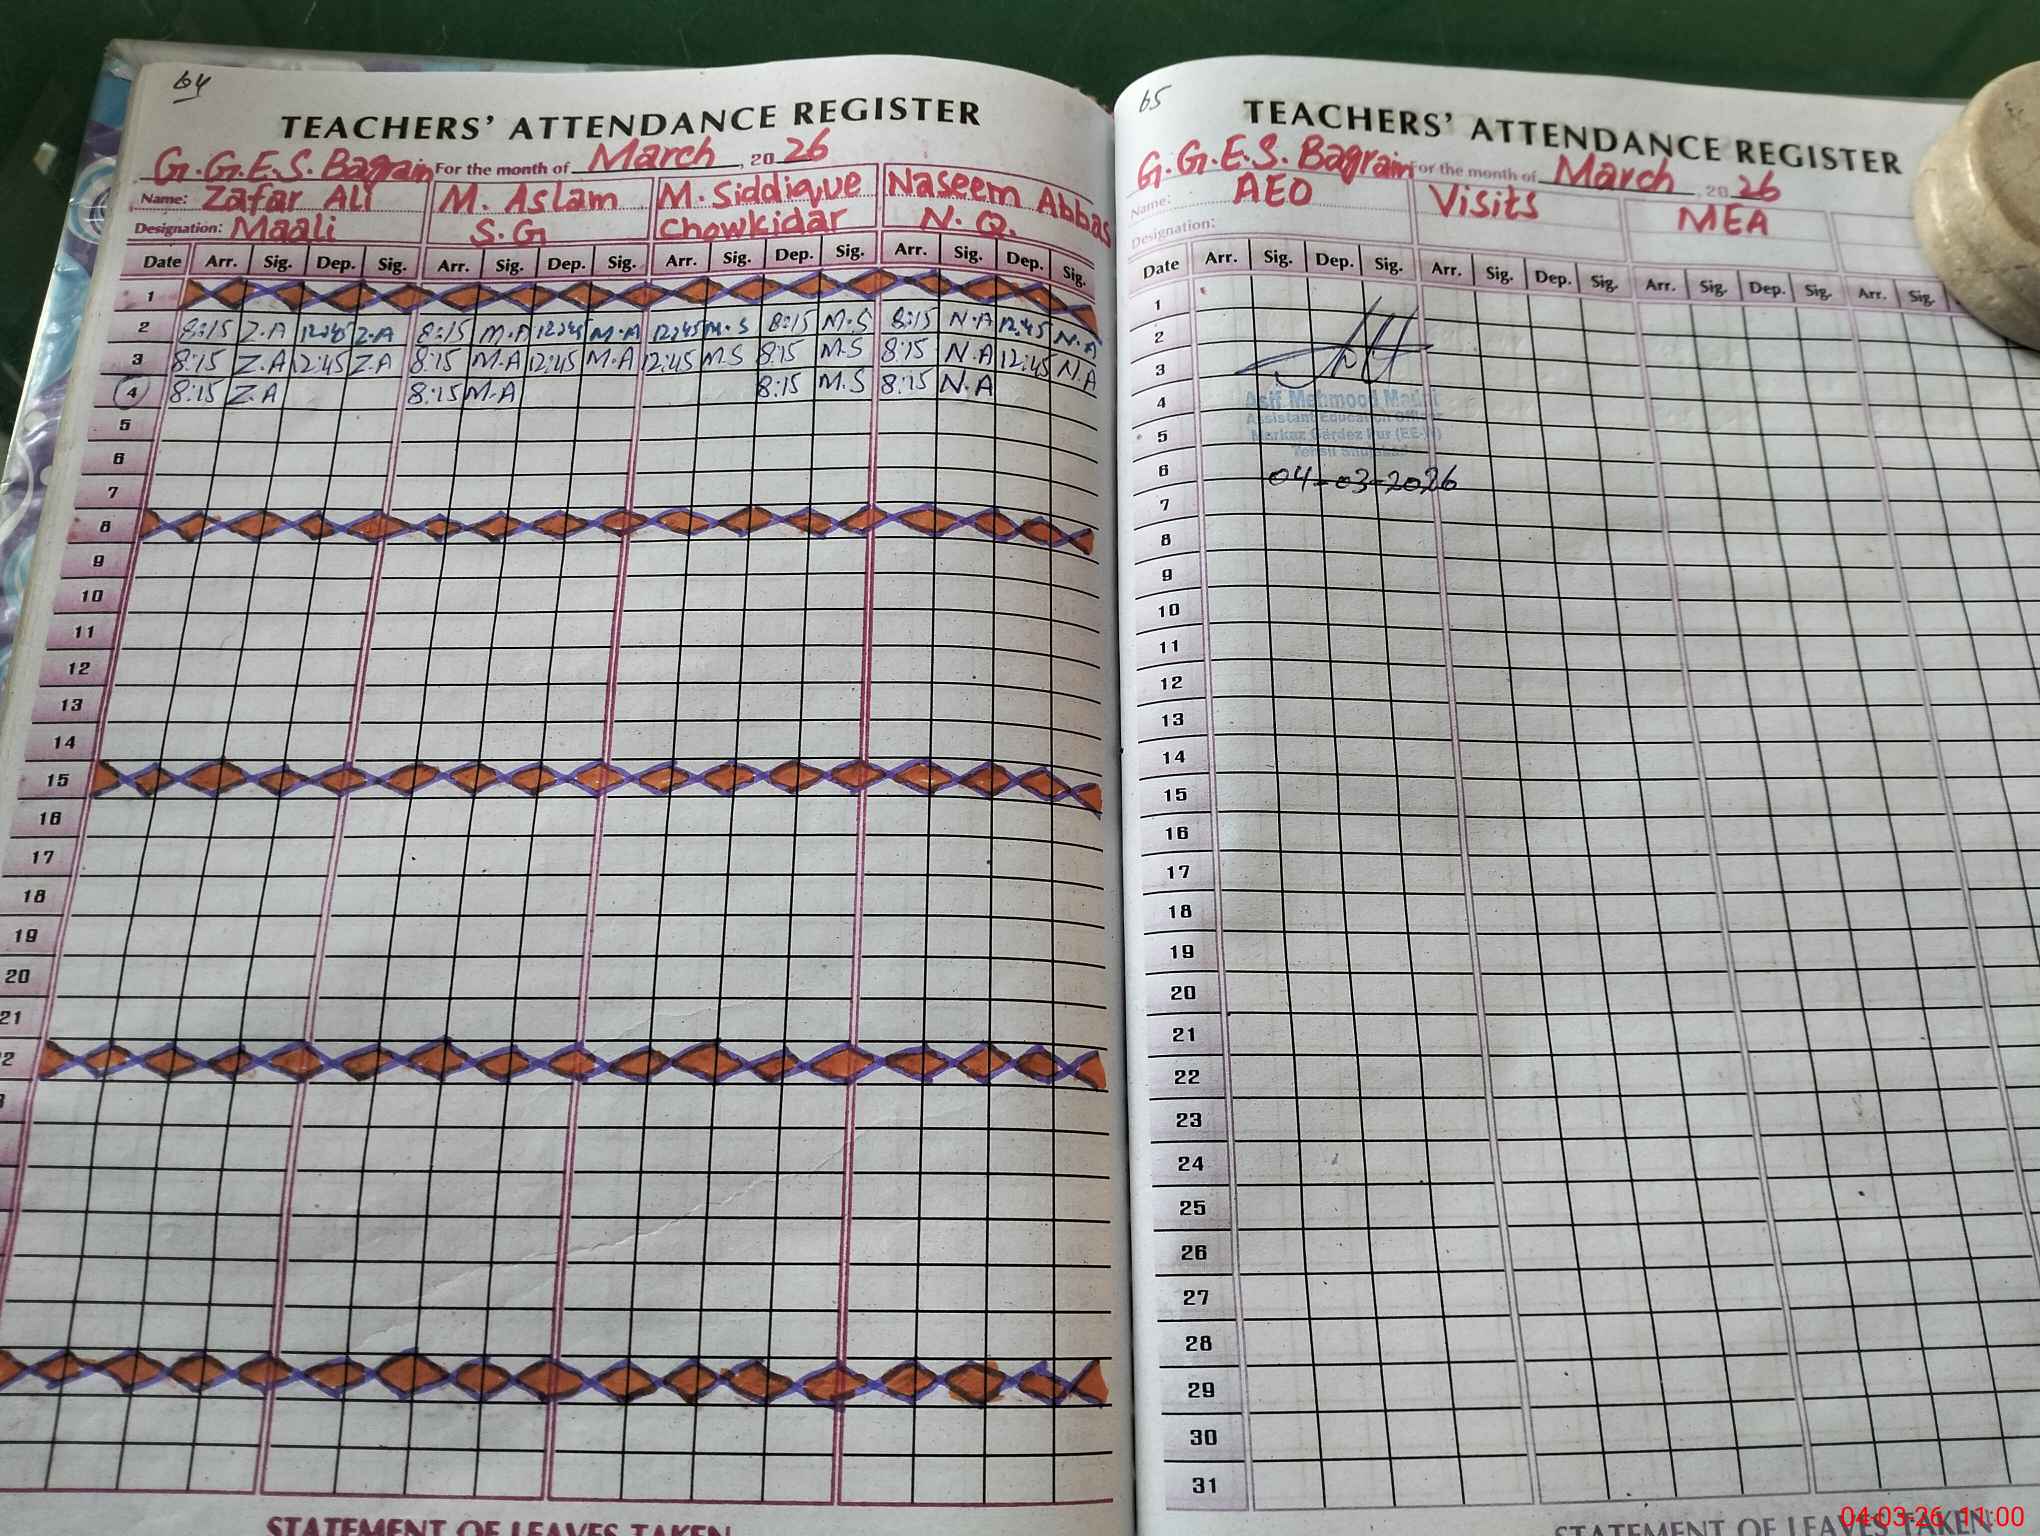 64
TEACHERS' ATTENDANCE REGISTER
G.G.E.S. Bagrain For the month of March, 2026
Name: Zafar Ali M. Aslam M. Siddique Naseem Abbas
Designation: Maali S.G Chowkidar N.Q.
Date Arr. Sig. Dep. Sig. Arr. Sig. Dep. Sig. Arr. Sig. Dep. Sig. Arr. Sig. Dep. Sig.
1
2 8:15 Z.A 12:45 Z.A 8:15 M.A 12:45 M.A 12:45 M.S 8:15 M.S 8:15 N.A 12:45 N.A
3 8:15 Z.A 12:45 Z.A 8:15 M.A 12:45 M.A 12:45 M.S 8:15 M.S 8:15 N.A 12:45 N.A
4 8:15 Z.A 8:15 M.A 8:15 M.S 8:15 N.A
5
6
7
8
9
10
11
12
13
14
15
16
17
18
19
20
21
2
STATEMENT OF LEAVES TAKEN
65
TEACHERS' ATTENDANCE REGISTER
G.G.E.S. Bagrain For the month of March, 2026
Name: AEO Visits MEA
Designation:
Date Arr. Sig. Dep. Sig. Arr. Sig. Dep. Sig. Arr. Sig. Dep. Sig. Arr. Sig.
1
2
3
4
Assistant Education Officer
5
6
04-03-2026
7
8
9
10
11
12
13
14
15
16
17
18
19
20
21
22
23
24
25
26
27
28
29
30
31
STATEMENT OF LEAVES TAKEN
04-03-26 11:00